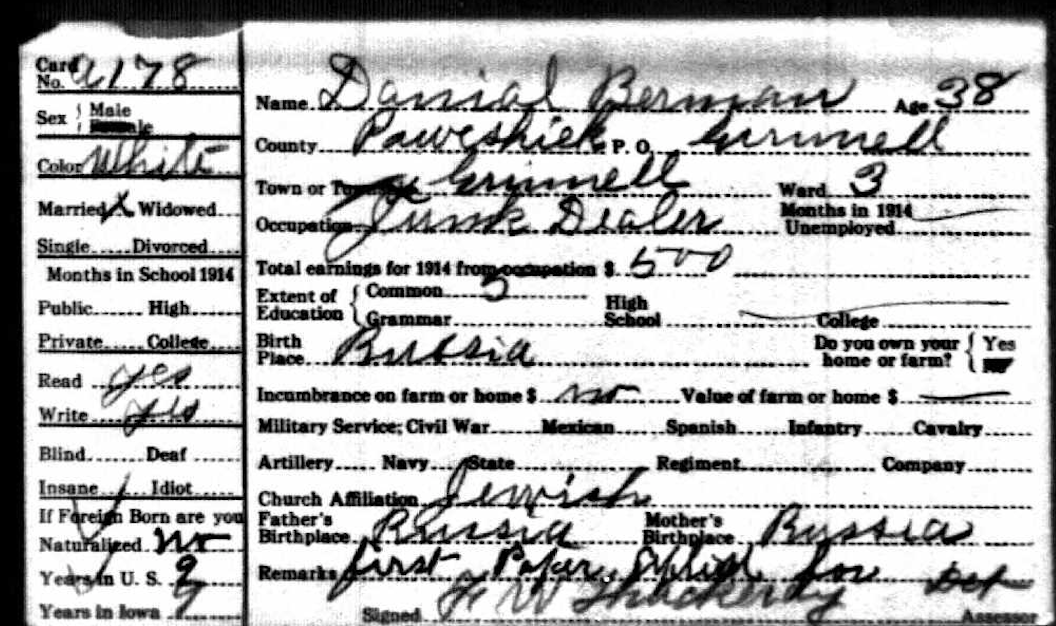 Card No. A178
Sex Male
Color White
Married X Widowed
Single Divorced
Months in School 1914
Public High
Private College
Read yes
Write yes
Blind Deaf
Insane Idiot
If Foreign Born are you
Naturalized No
Years in U. S. 9
Years in Iowa 9
Name Danial Berman Age 38
County Poweshiek P. O. Grinnell
Town or Grinnell Ward 3
Occupation Junk Dealer Months in 1914 Unemployed
Total earnings for 1914 from occupation $ 500
Extent of Education Common 5 High School College
Grammar
Birth Place Russia Do you own your home or farm? Yes
Incumbrance on farm or home $ no Value of farm or home $
Military Service; Civil War Mexican Spanish Infantry Cavalry
Artillery Navy State Regiment Company
Church Affiliation Jewish
Father's Birthplace Russia Mother's Birthplace Russia
Remarks first Paper for
Signed Assessor